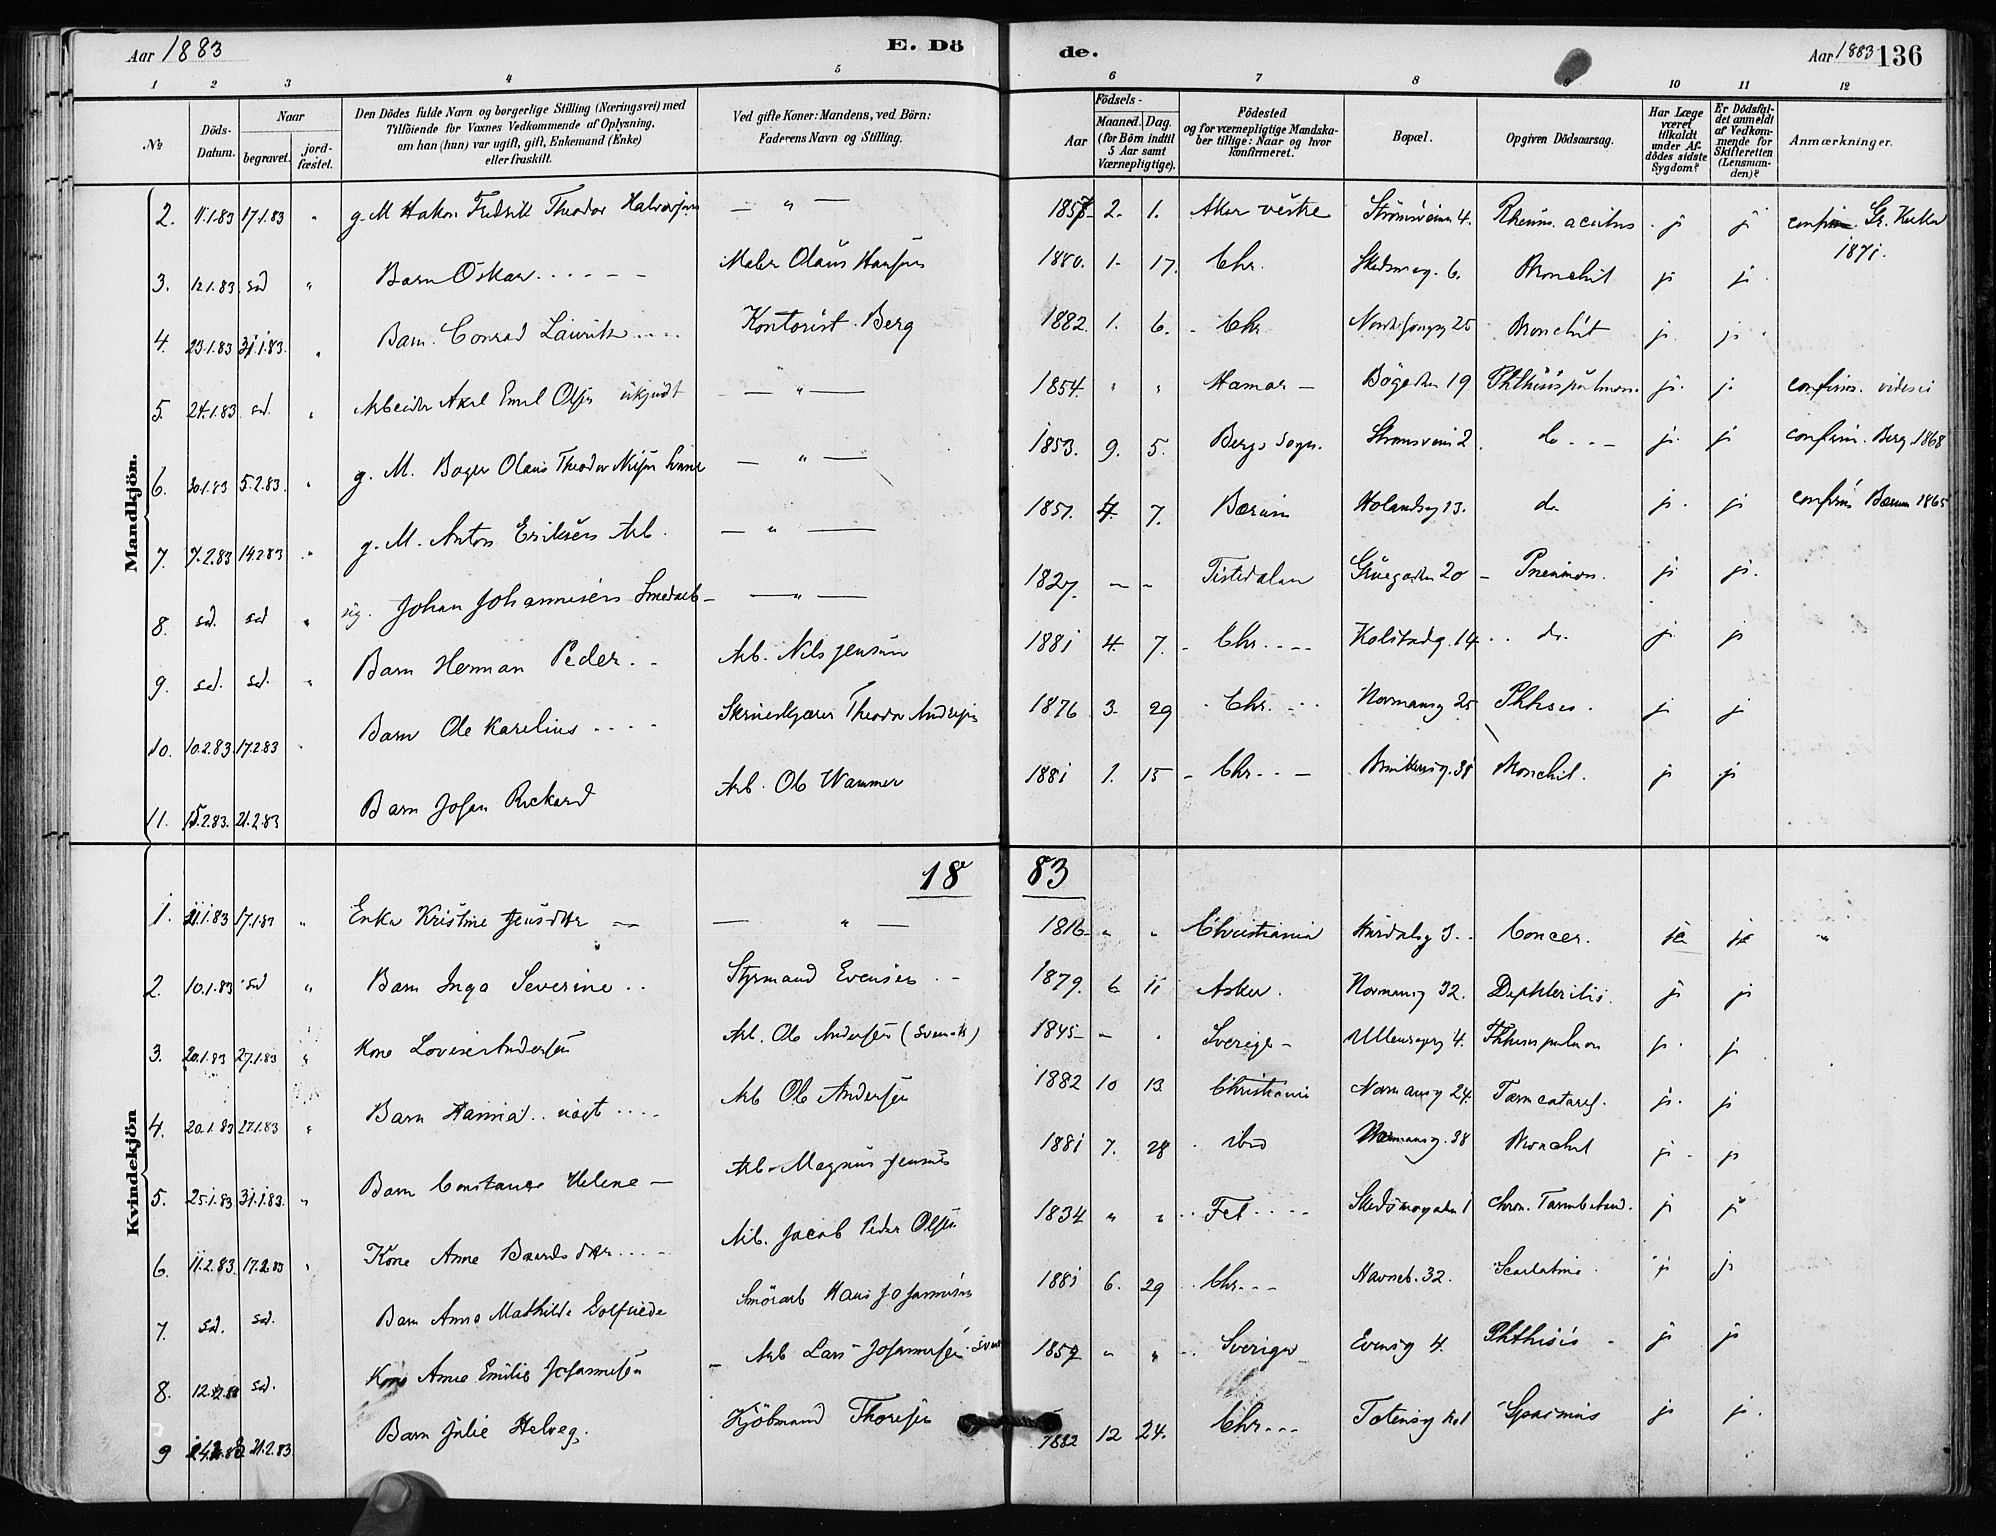 Aar 1883 E. Dö de. Aar 1883 136
1 2 3 4 5 6 7 8 9 10 11 12
№
Döds-Datum.
Naar
begravet.
jord-fæstet.
Den Dödes fulde Navn og borgerlige Stilling (Næringsvei) med
Tilföiende for Voxnes Vedkommende af Oplysning,
om han (hun) var ugift, gift, Enkemand (Enke)
eller fraskilt.
Ved gifte Koner: Mandens, ved Börn:
Faderens Navn og Stilling.
Födsels-
Aar
Maaned. Dag.
(for Börn indtil
5 Aar samt
Værnepligtige).
Födested
og for værnepligtige Mandska-
ber tillige: Naar og hvor
konfirmeret.
Bopæl.
Opgiven Dödsaarsag.
Har Læge
været
tilkaldt
under Af-
dödes sidste
Sygdom?
Er Dödsfal-
det anmeldt
af Vedkom-
mende for
Skifteretten
(Lensman-
den)?
Anmærkninger.
Mandkjön.
2. 11.1.83 17.1.83 " g. M Hakon Fredrik Theodor Halvorsen — " — 2. 1. Aker vestre Strömsveien 4. Rheum. acutus ja ja
1871.
3. 12.1.83 sd " Barn Oskar Maler Olaus Hansen 1880. 1. 17. Chr. Skedsmog. 6. Bronchit ja ja
4. 23.1.83 31.1.83. " Barn Conrad Lauritz Kontorist Berg 1882. 1. 6. Chr. 25 Bronchit ja ja
5. 24.1.83 sd. " Arbeider Axel Emil Olsen ukjendt — " — 1854. " " Hamar Bögaden 19 Phthisis pulmon. ja ja confirm. vides ei
6. 30.1.83 5.2.83. " g. M. Bager Olaus Theodor — " — 1853. 9. 5. Bergs Sogn. Strömsveien 2. do ja ja confirm. Berg. 1868
7. 7.2.83 14.2.83 " g. M. Anton Eriksen Arb. — " — 1851. 4. 7. Bærum Holandsg 13. do ja ja confirm. Bærum 1865
8. sd. sd " Johan Johannesen Smedarb — " — 1827. — — Tistedalen Gruegaden 20 Pneumon. ja ja.
9. sd. sd. " Barn Herman Peder Arb. Nils Jensen 1881 4. 7. Chr. Kolstadg. 14 do ja ja
10. 10.2.83. 17.2.83 Barn Ole Karelius Skrueskjærer Theodor Andresen 1876 3. 29 Chr. Normansg 25 Phthisis. ja ja
11. 15.2.83. 21.2.83 Barn Johan Rickard Arb. Ole Wammer 1881 1. 15 Chr. 38 Bronchit. ja ja
18 83
Kvindekjön
1. 11.1.83 17.1.83 " Enke Kristine Jensdtter — " — 1816 " " Christiania Hurdalsg 3. Cancer. ja ja "
2. 10.1.83 sd " Barn Inga Severine Styrmand Evensen 1879. 6 11 Asker. Normansg 32. Diphteritis. ja ja
3. 20.1.83 27.1.83 " Kone Lovise Andersen Arb. Ole Andersen (Svensk) 1845 — Sverige Ullensagerg 4. Phthisis pulmon ja. ja
4. 20.1.83 27.1.83 " Barn Hanna Arb Ole Andersen 1882 10 13 Christiania Normansg 24. Tarmcatarrh. ja. ja
5. 25.1.83 31.1.83. " Barn Constance Helene Arb. Magnus Jensen 1881 7. 28 ibid Normansg. 38 Bronchit ja ja
6. 11.2.83. 17.2.83 " Kone Anne Baardsdtter Arb. Jacob Peder Olsen 1834 " " Fet Skedsmogaden 1 chron. ja ja
7. sd. sd. Barn Anna Mathilde Golfriede Hans Johannesen 1881 6. 29 Chr. Havneb. 32. Scarlatina ja ja
8. sd. Kone Anne Emilie Johannesen Arb Lars Johannesen 1859 " " Sverige Evensg 4. Phthisis ja ja
9 21.2.83 Barn Julie Helveg. Kjöbmand Thoresen 1882 12 24. Chr. Totensg Spasmus ja ja.